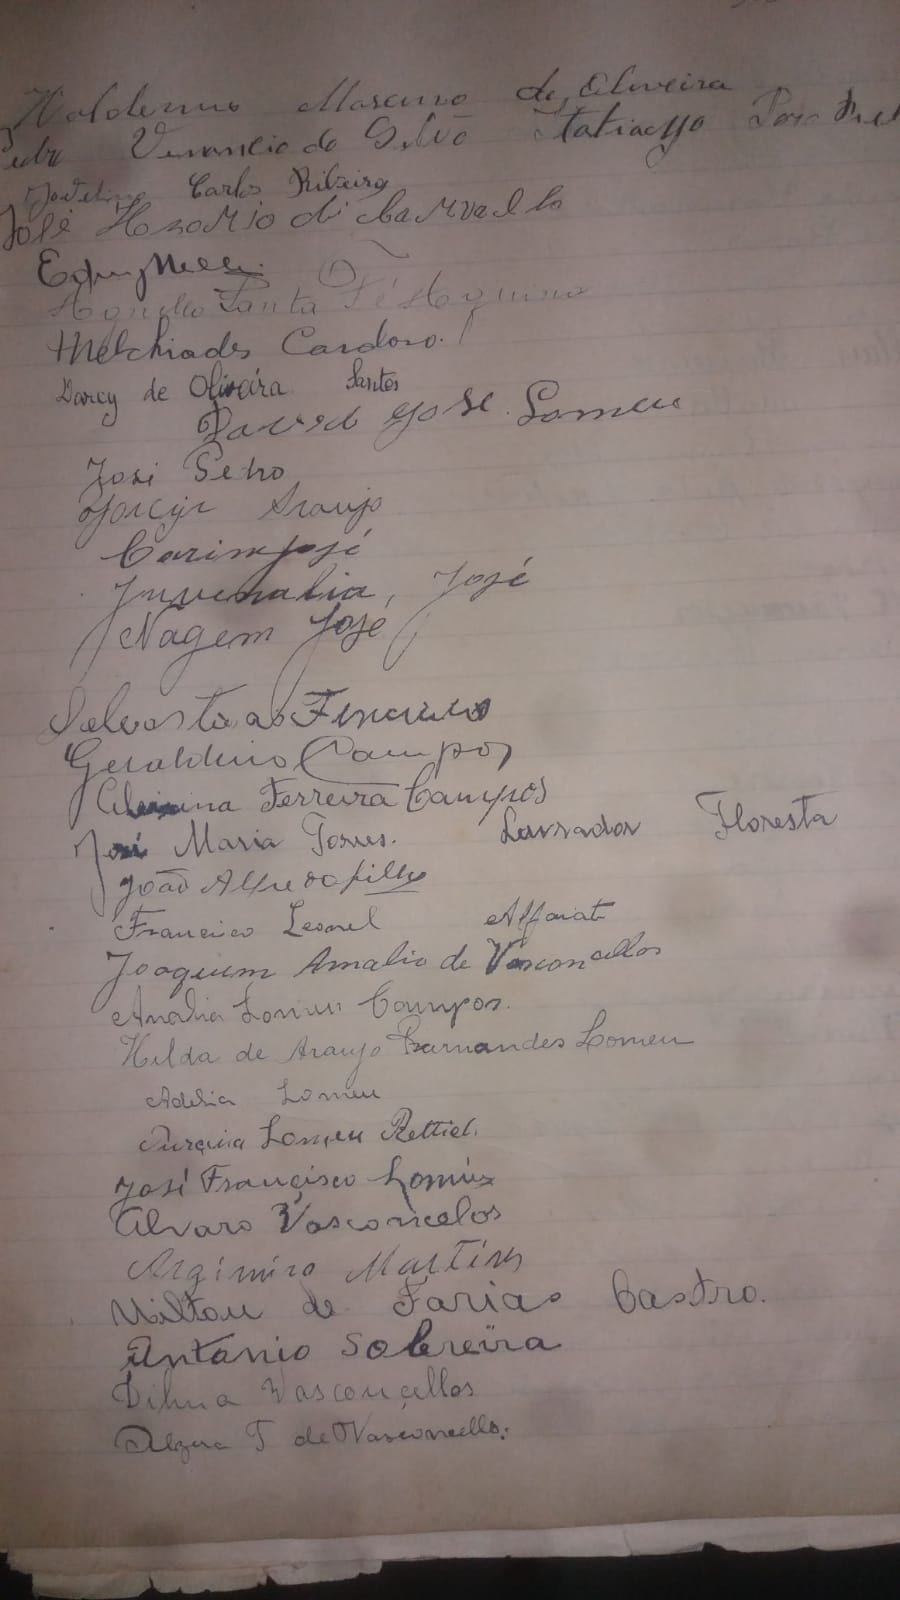 Waldemiro Marciano de Oliveira
Pedro Venancio da Silva Itatiayo
Jovelino Carlos Ribeiro
José Honorio di Carvalho
Agnello Santa Fé Aquino
Melchiades Cardoso.
Darcy de Oliveira Santos
David José Lomeu
José Pedro
Joacyr Araujo
Carim José
Juvenalia, José
Nagem José
Geraldino Campos
Ferreira Campos
José Maria Torres. Lavrador Floresta
João Alfredo filho
Francisco Leonel Alfaiate
Joaquim Amalio de Vasconcellos
Analia Lomeu Campos.
Hilda de Araujo Bernandes Lomeu
Adelia Lomeu
Lomeu Rettiel.
José Francisco
Alvaro Vasconcelos
Argimiro Martins
Nilton de Farias Castro.
Antonio Sobreira
Dilma Vasconcellos
T de Vasconcellos.